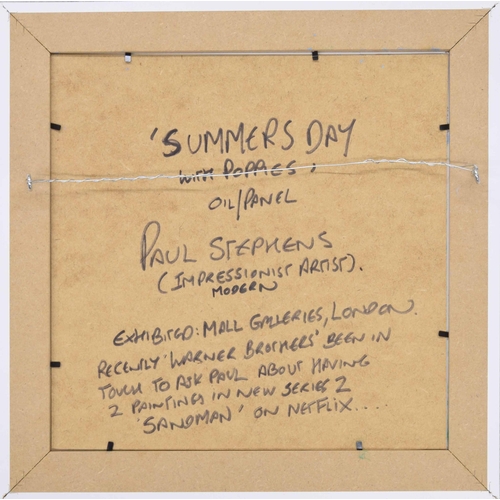 'SUMMERS DAY
WITH POPPIES'
OIL/PANEL
PAUL STEPHENS
(IMPRESSIONIST ARTIST).
MODERN
EXHIBITED: MALL GALLERIES, LONDON.
RECENTLY 'WARNER BROTHERS' BEEN IN
TOUCH TO ASK PAUL ABOUT HAVING
2 PAINTINGS IN NEW SERIES 2
'SANDMAN' ON NETFLIX....